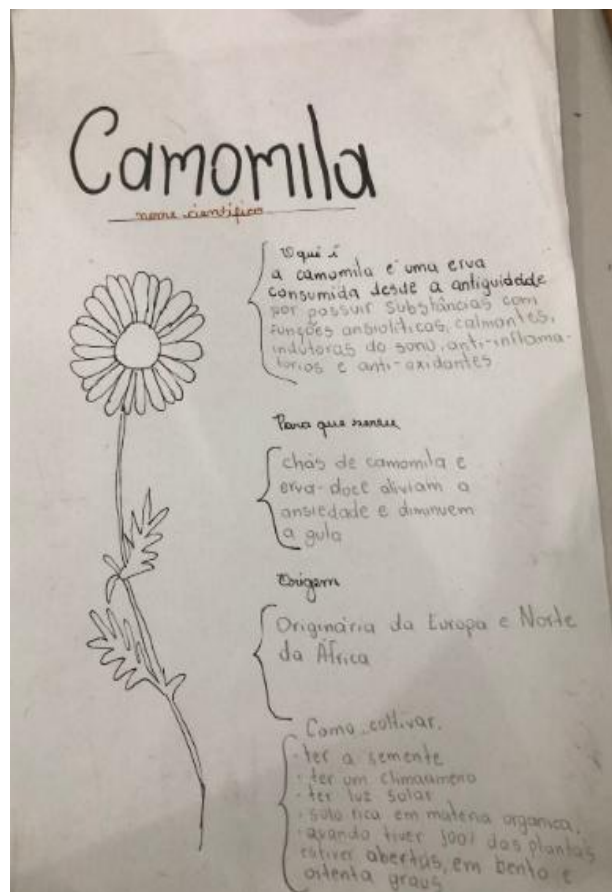 Camomila
nome científico
O qui é
a camomila é uma erva
consumida desde a antiguidade
por possuir substâncias com
funções ansiolíticas, calmantes,
indutoras do sono, anti-inflama-
tórios e anti-oxidantes
Para que serve
chás de camomila e
erva-doce aliviam a
ansiedade e diminuem
a gula
Origem
Originária da Europa e Norte
da África
Como cultivar.
· ter a semente
· ter um clima ameno
· ter luz solar
· solo rico em matéria orgânica.
· quando tiver das plantas
estiver abertas, em bento e
oitenta graus